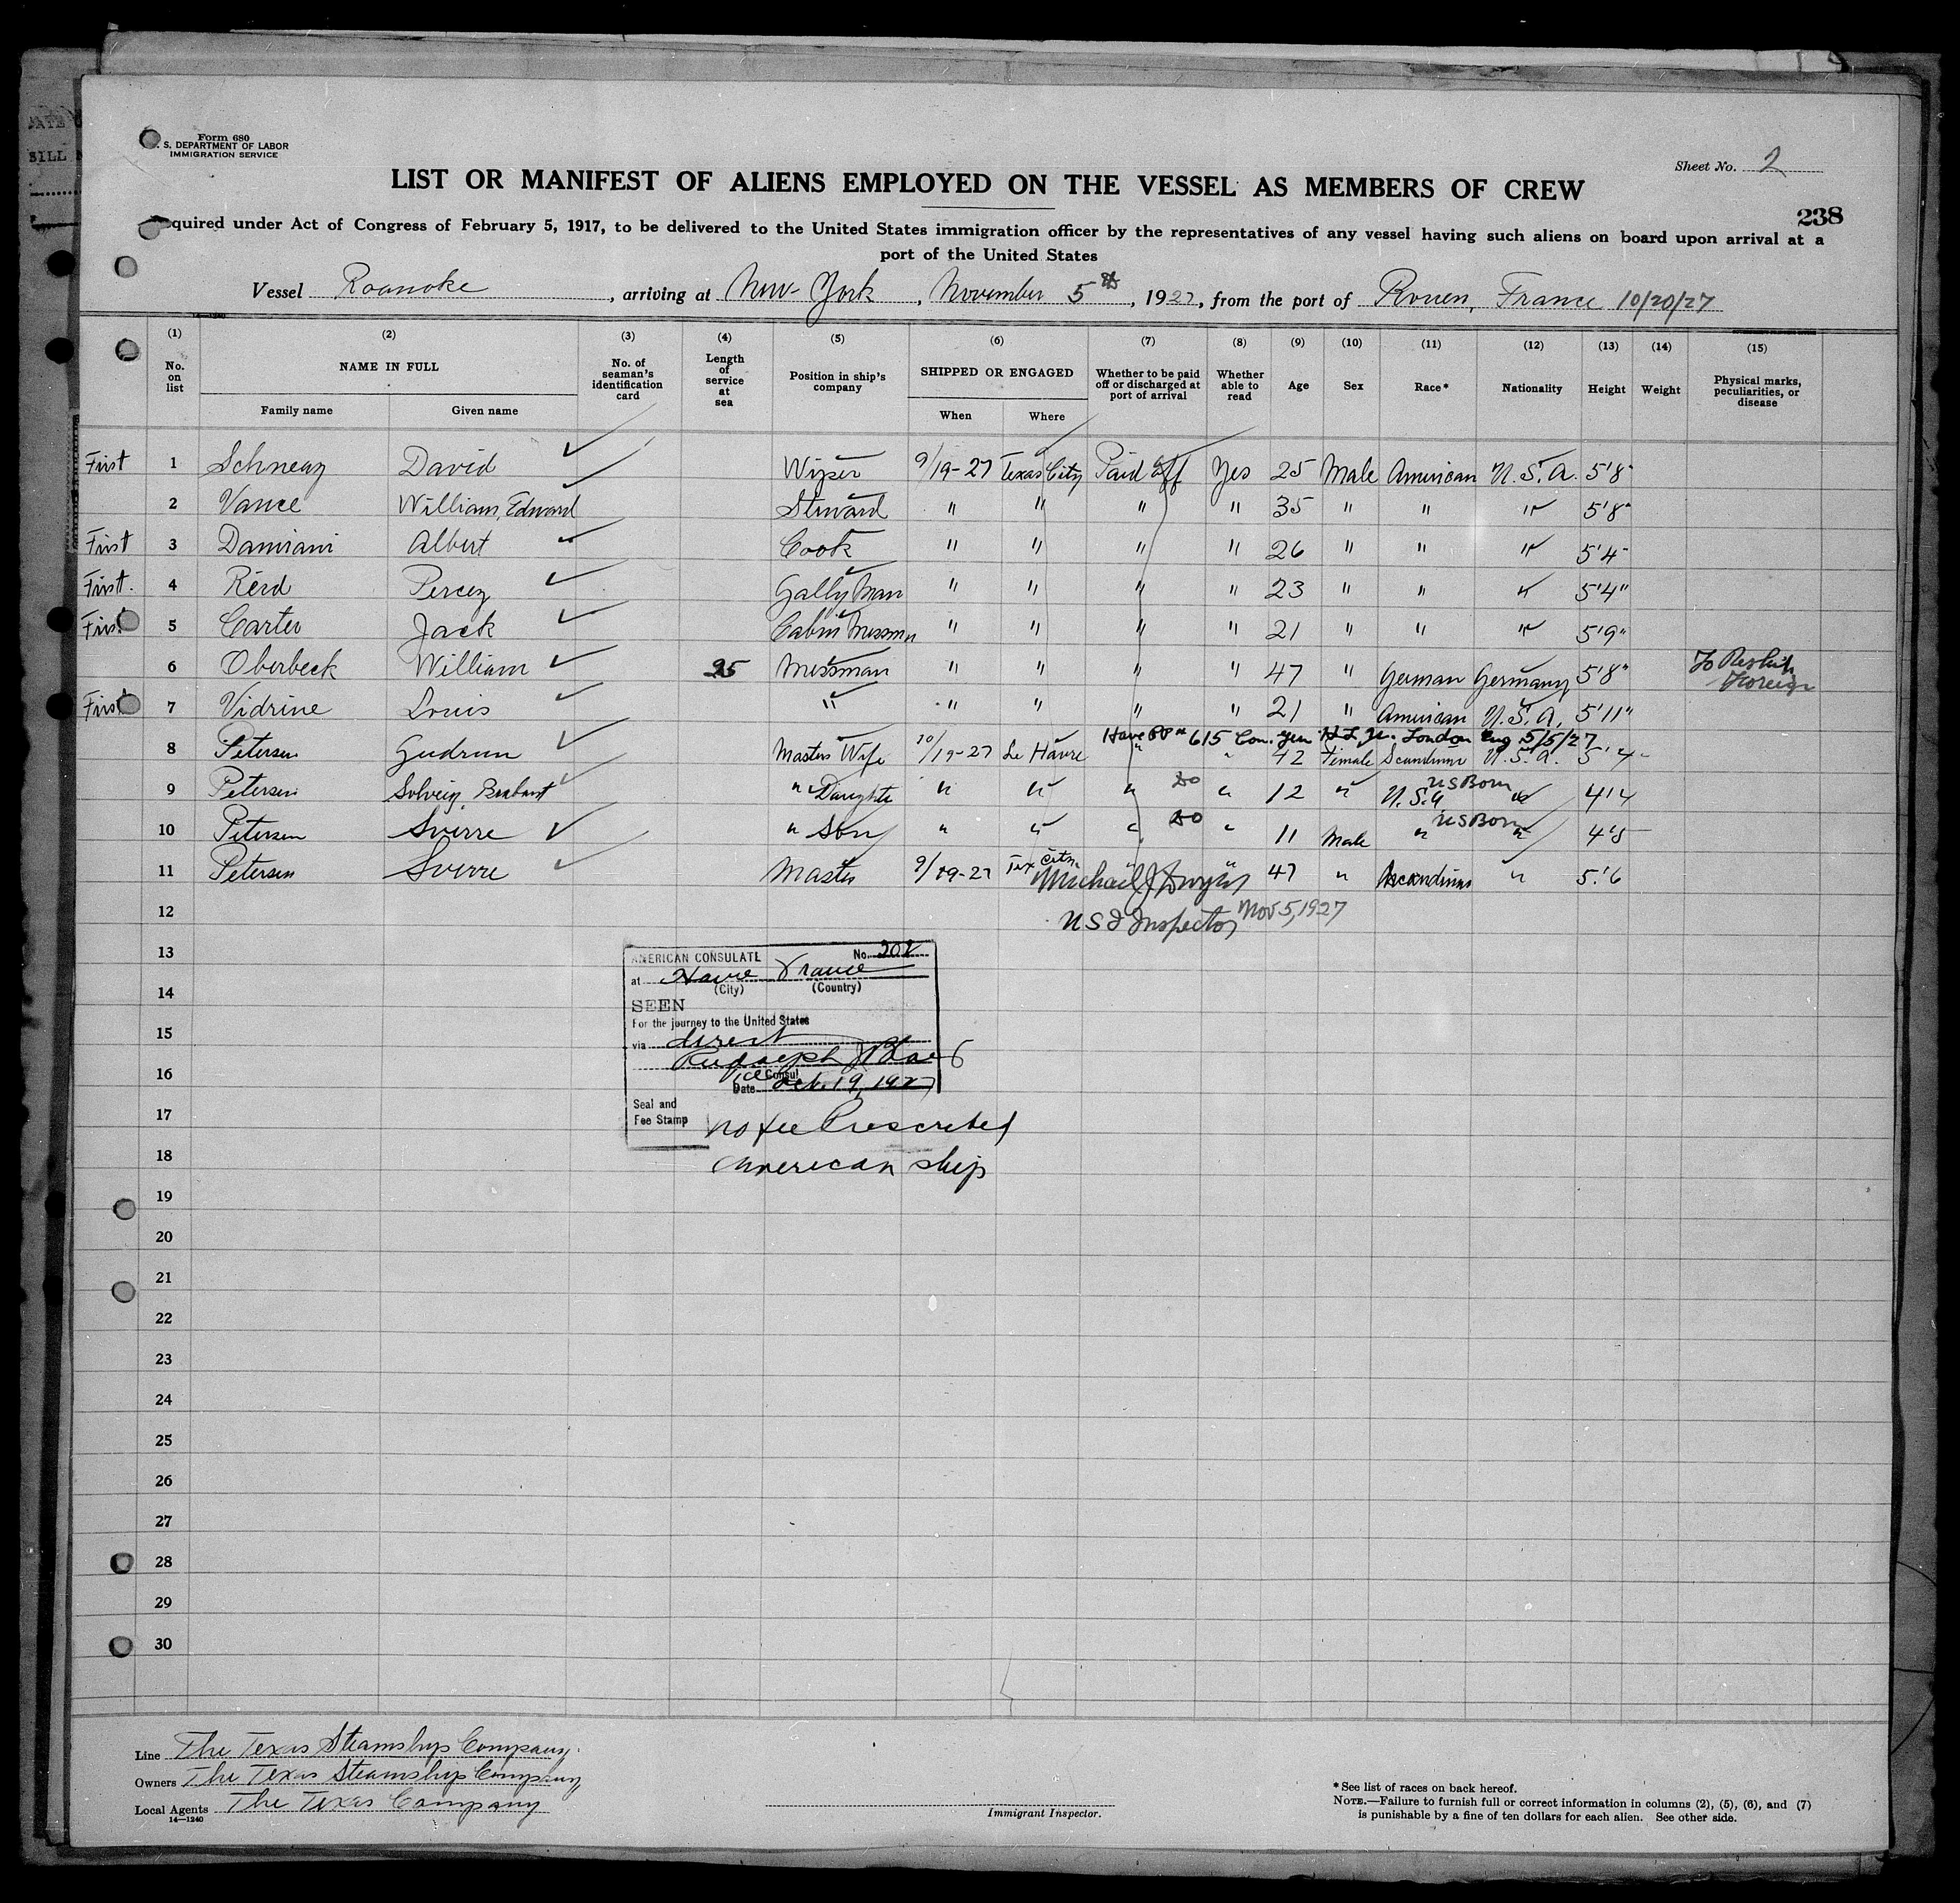 Form 680
S. DEPARTMENT OF LABOR
IMMIGRATION SERVICE
Sheet No. 2
LIST OR MANIFEST OF ALIENS EMPLOYED ON THE VESSEL AS MEMBERS OF CREW
238
quired under Act of Congress of February 5, 1917, to be delivered to the United States immigration officer by the representatives of any vessel having such aliens on board upon arrival at a
port of the United States
Vessel Roanoke, arriving at New York, November 5th, 1927, from the port of Rouen, France 10/20/27
(1) (2) (3) (4) (5) (6) (7) (8) (9) (10) (11) (12) (13) (14) (15)
No. on list
NAME IN FULL
Family name
Given name
No. of seaman's identification card
Length of service at sea
Position in ship's company
SHIPPED OR ENGAGED
When
Where
Whether to be paid off or discharged at port of arrival
Whether able to read
Age
Sex
Race*
Nationality
Height
Weight
Physical marks, peculiarities, or disease
First 1 David Wiper 9/19-27 Texas City Paid off Yes 25 Male American U.S.A. 5'8"
2 Vance William, Edward Steward " " " " 35 " " " 5'8"
First 3 Damiani Albert Cook " " " " 26 " " " 5'4"
First. 4 Reid Percey Gally Man " " " " 23 " " " 5'4"
First 5 Carter Jack Cabin Messman " " " " 21 " " " 5'9"
6 Oberbeck William 25 Messman " " " " 47 " German Germany 5'8" To Reship Foreign
First 7 Vidrine Louis " " " " " 21 " American U.S.A. 5'11"
Have PP # 615 Con. Gen. London Eng. 5/5/27
8 Petersen Gudrun Masters Wife 10/19-27 Le Havre " " 42 Female U.S.A. 5'4"
9 Petersen Solveig " Daughter " " " do " 12 " U.S.A US Born " 4'4
10 Petersen Sverre " Son " " " do " 11 Male " US Born " 4'8
11 Petersen Sverre Master 9/19-27 Tex City " " 47 " " 5'6
Michael J Dwyer
12 U S I Inspector Nov 5, 1927
13
14
15
16
17
18
19
20
21
22
23
24
25
26
27
28
29
30
AMERICAN CONSULATE No. 202
at Havre France
(City) (Country)
SEEN
For the journey to the United States
via direct
Rudolph
Vice Consul
Date Oct. 19, 1927
Seal and
Fee Stamp
No fee Prescribed
American ship
Line The Texas Steamship Company.
Owners The Texas Steamship Company
Local Agents The Texas Company
14—1240
Immigrant Inspector.
* See list of races on back hereof.
NOTE.—Failure to furnish full or correct information in columns (2), (5), (6), and (7)
is punishable by a fine of ten dollars for each alien. See other side.